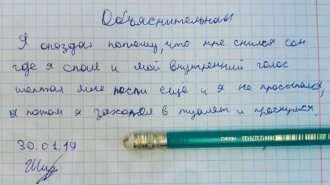 Объяснительная
Я опоздал потому, что мне снился сон
где я спал и мой внутренний голос
шептал мне поспи ещё и я не просыпался,
а потом я захотел в туалет и проснулся.
30.01.19